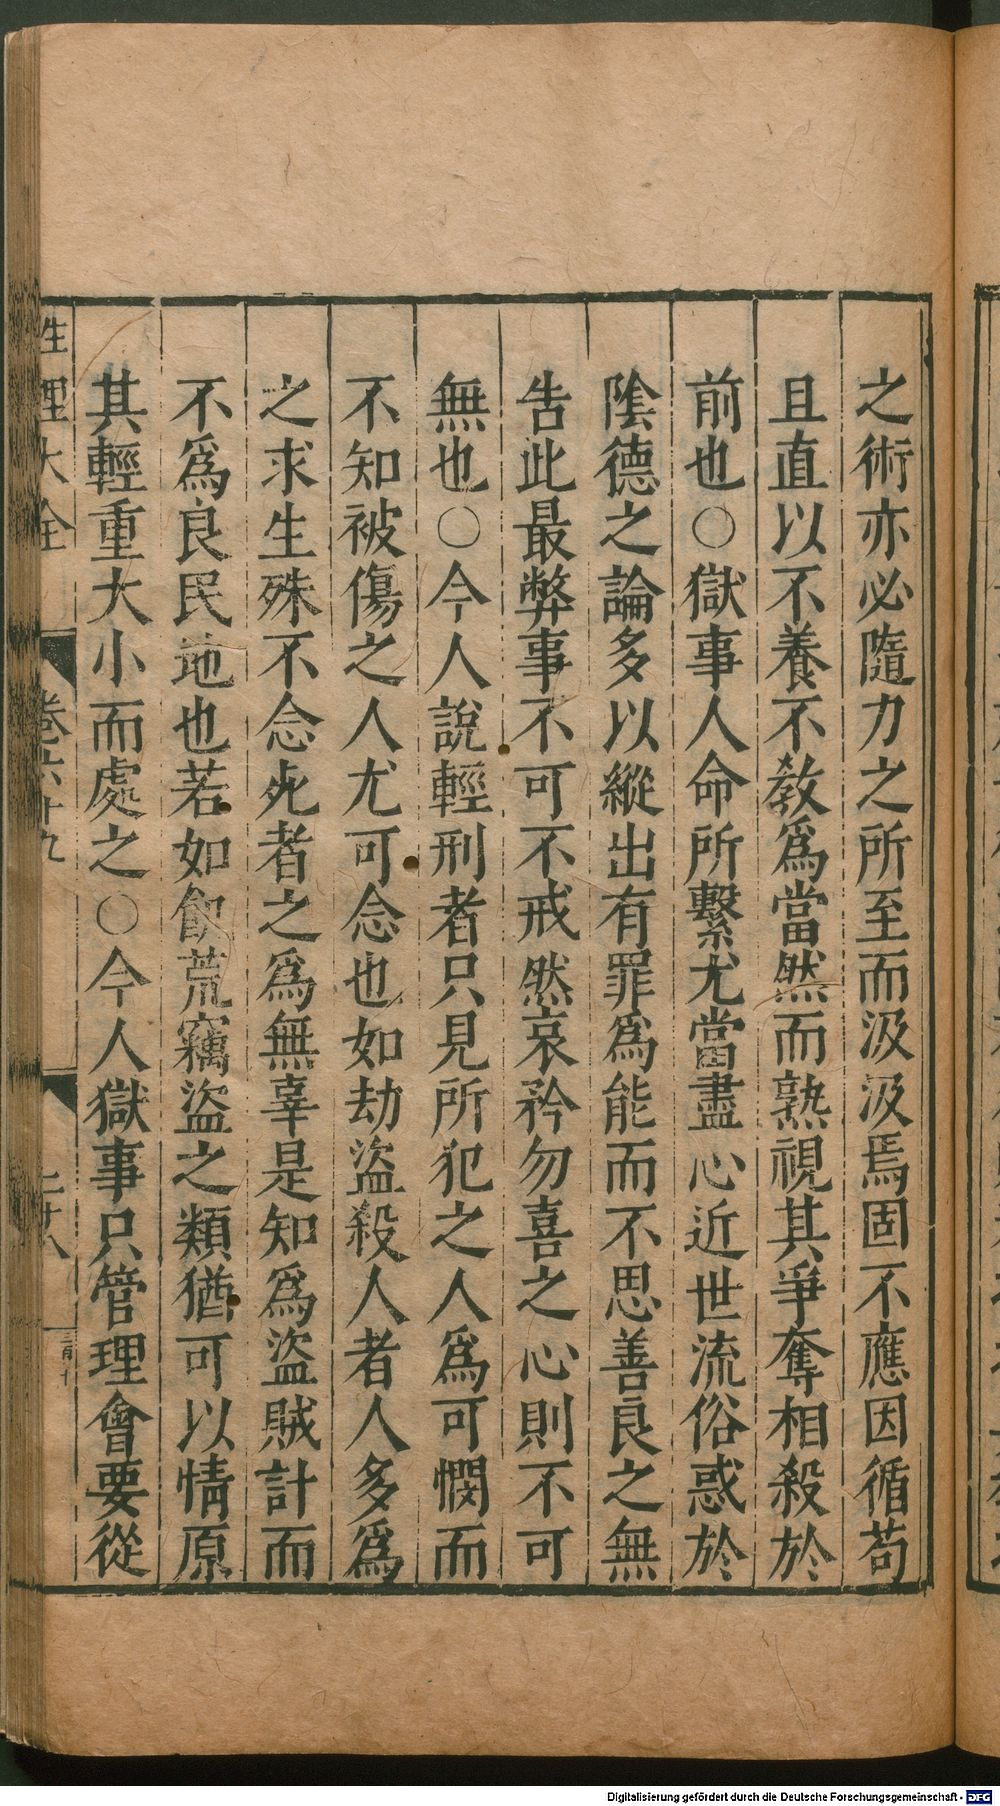 之術亦必隨力之所至而汲汲焉固不應因循苟
且直以不養不敎爲當然而熟視其爭奪相殺於
前也○獄事人命所繫尤當盡心近世流俗惑於
陰德之論多以縱出有罪爲能而不思善良之無
告此最弊事不可不戒然哀矜勿喜之心則不可
無也○今人說輕刑者只見所犯之人爲可憫而
不知被傷之人尤可念也如劫盜殺人者人多爲
之求生殊不念死者之爲無辜是知爲盜賊計而
不爲良民地也若如飢荒竊盜之類猶可以情原
其輕重大小而處之○今人獄事只管理會要從
性理大全 卷六十九 二十八
Digitalisierung gefördert durch die Deutsche Forschungsgemeinschaft - DFG